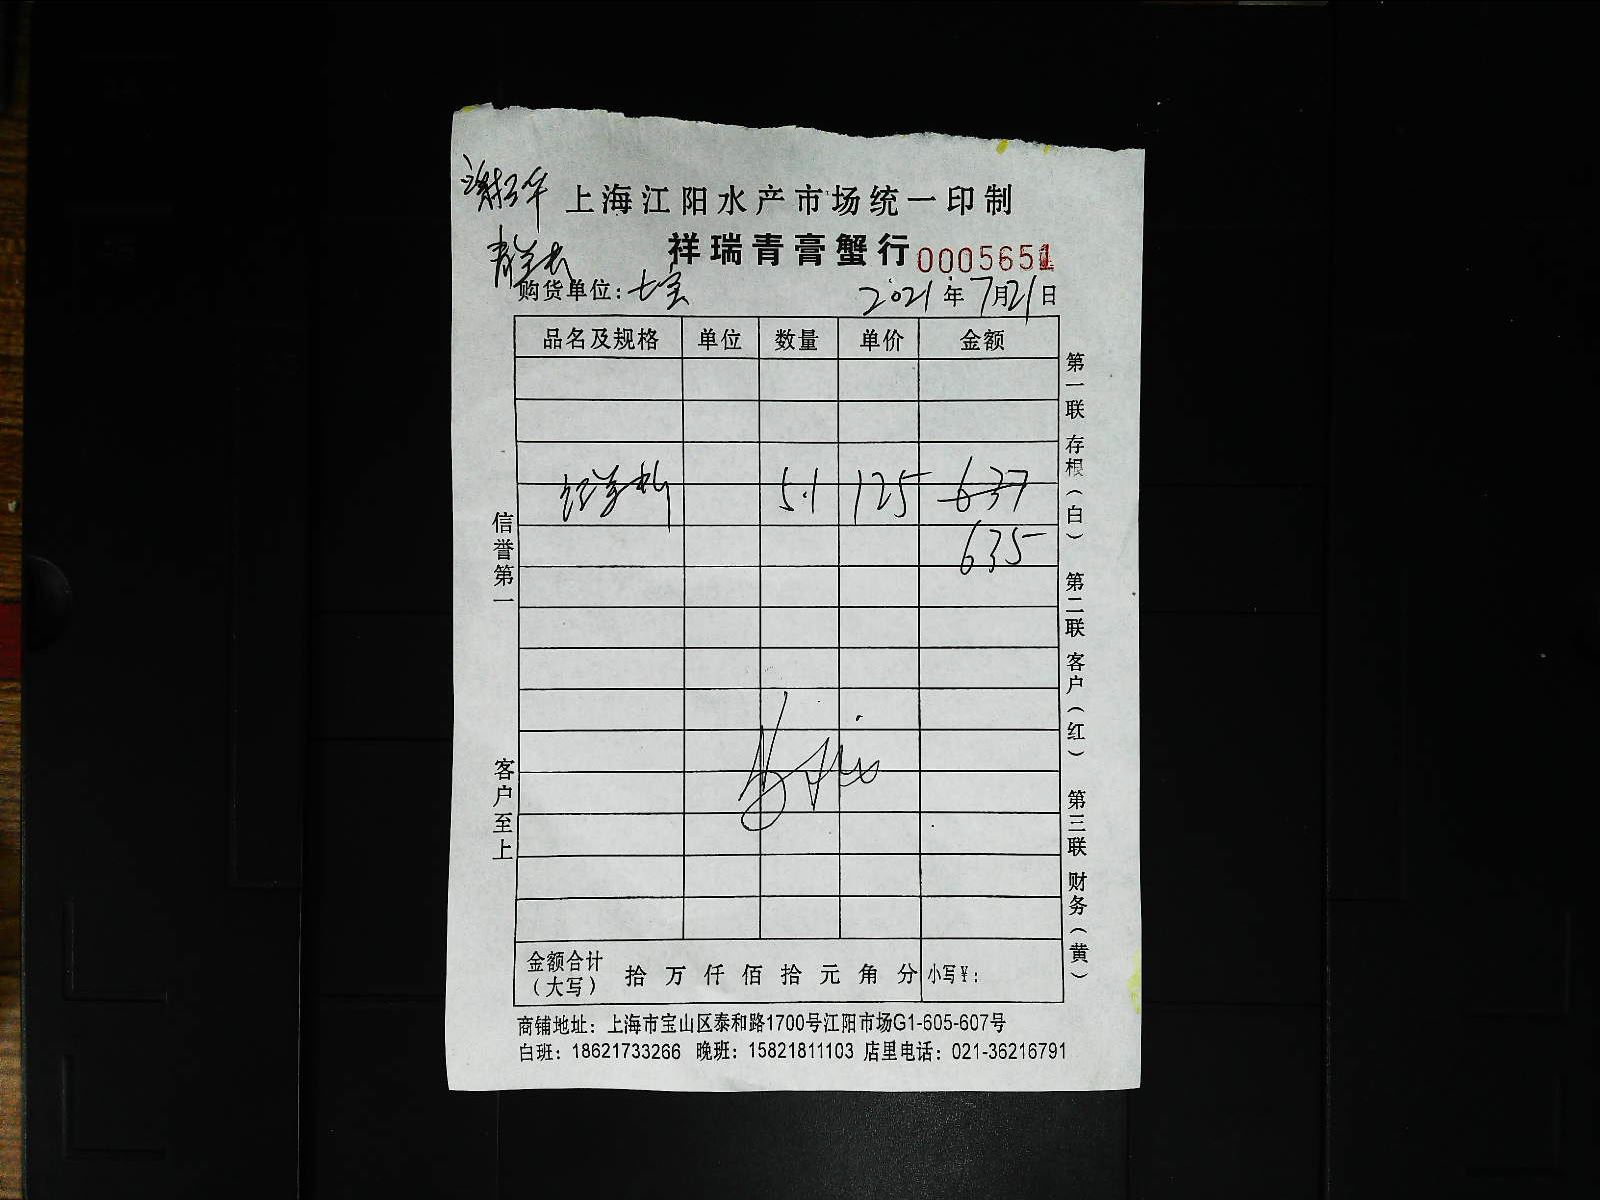 上海江阳水产市场统一印制
祥瑞青膏蟹行 0005651
购货单位：七宝 2021年7月21日
品名及规格 单位 数量 单价 金额
5.1 125 637
635
金额合计（大写） 拾 万 仟 佰 拾 元 角 分 小写¥：
商铺地址：上海市宝山区泰和路1700号江阳市场G1-605-607号
白班：18621733266 晚班：15821811103 店里电话：021-36216791
信誉第一
客户至上
第一联 存根（白） 第二联 客户（红） 第三联 财务（黄）